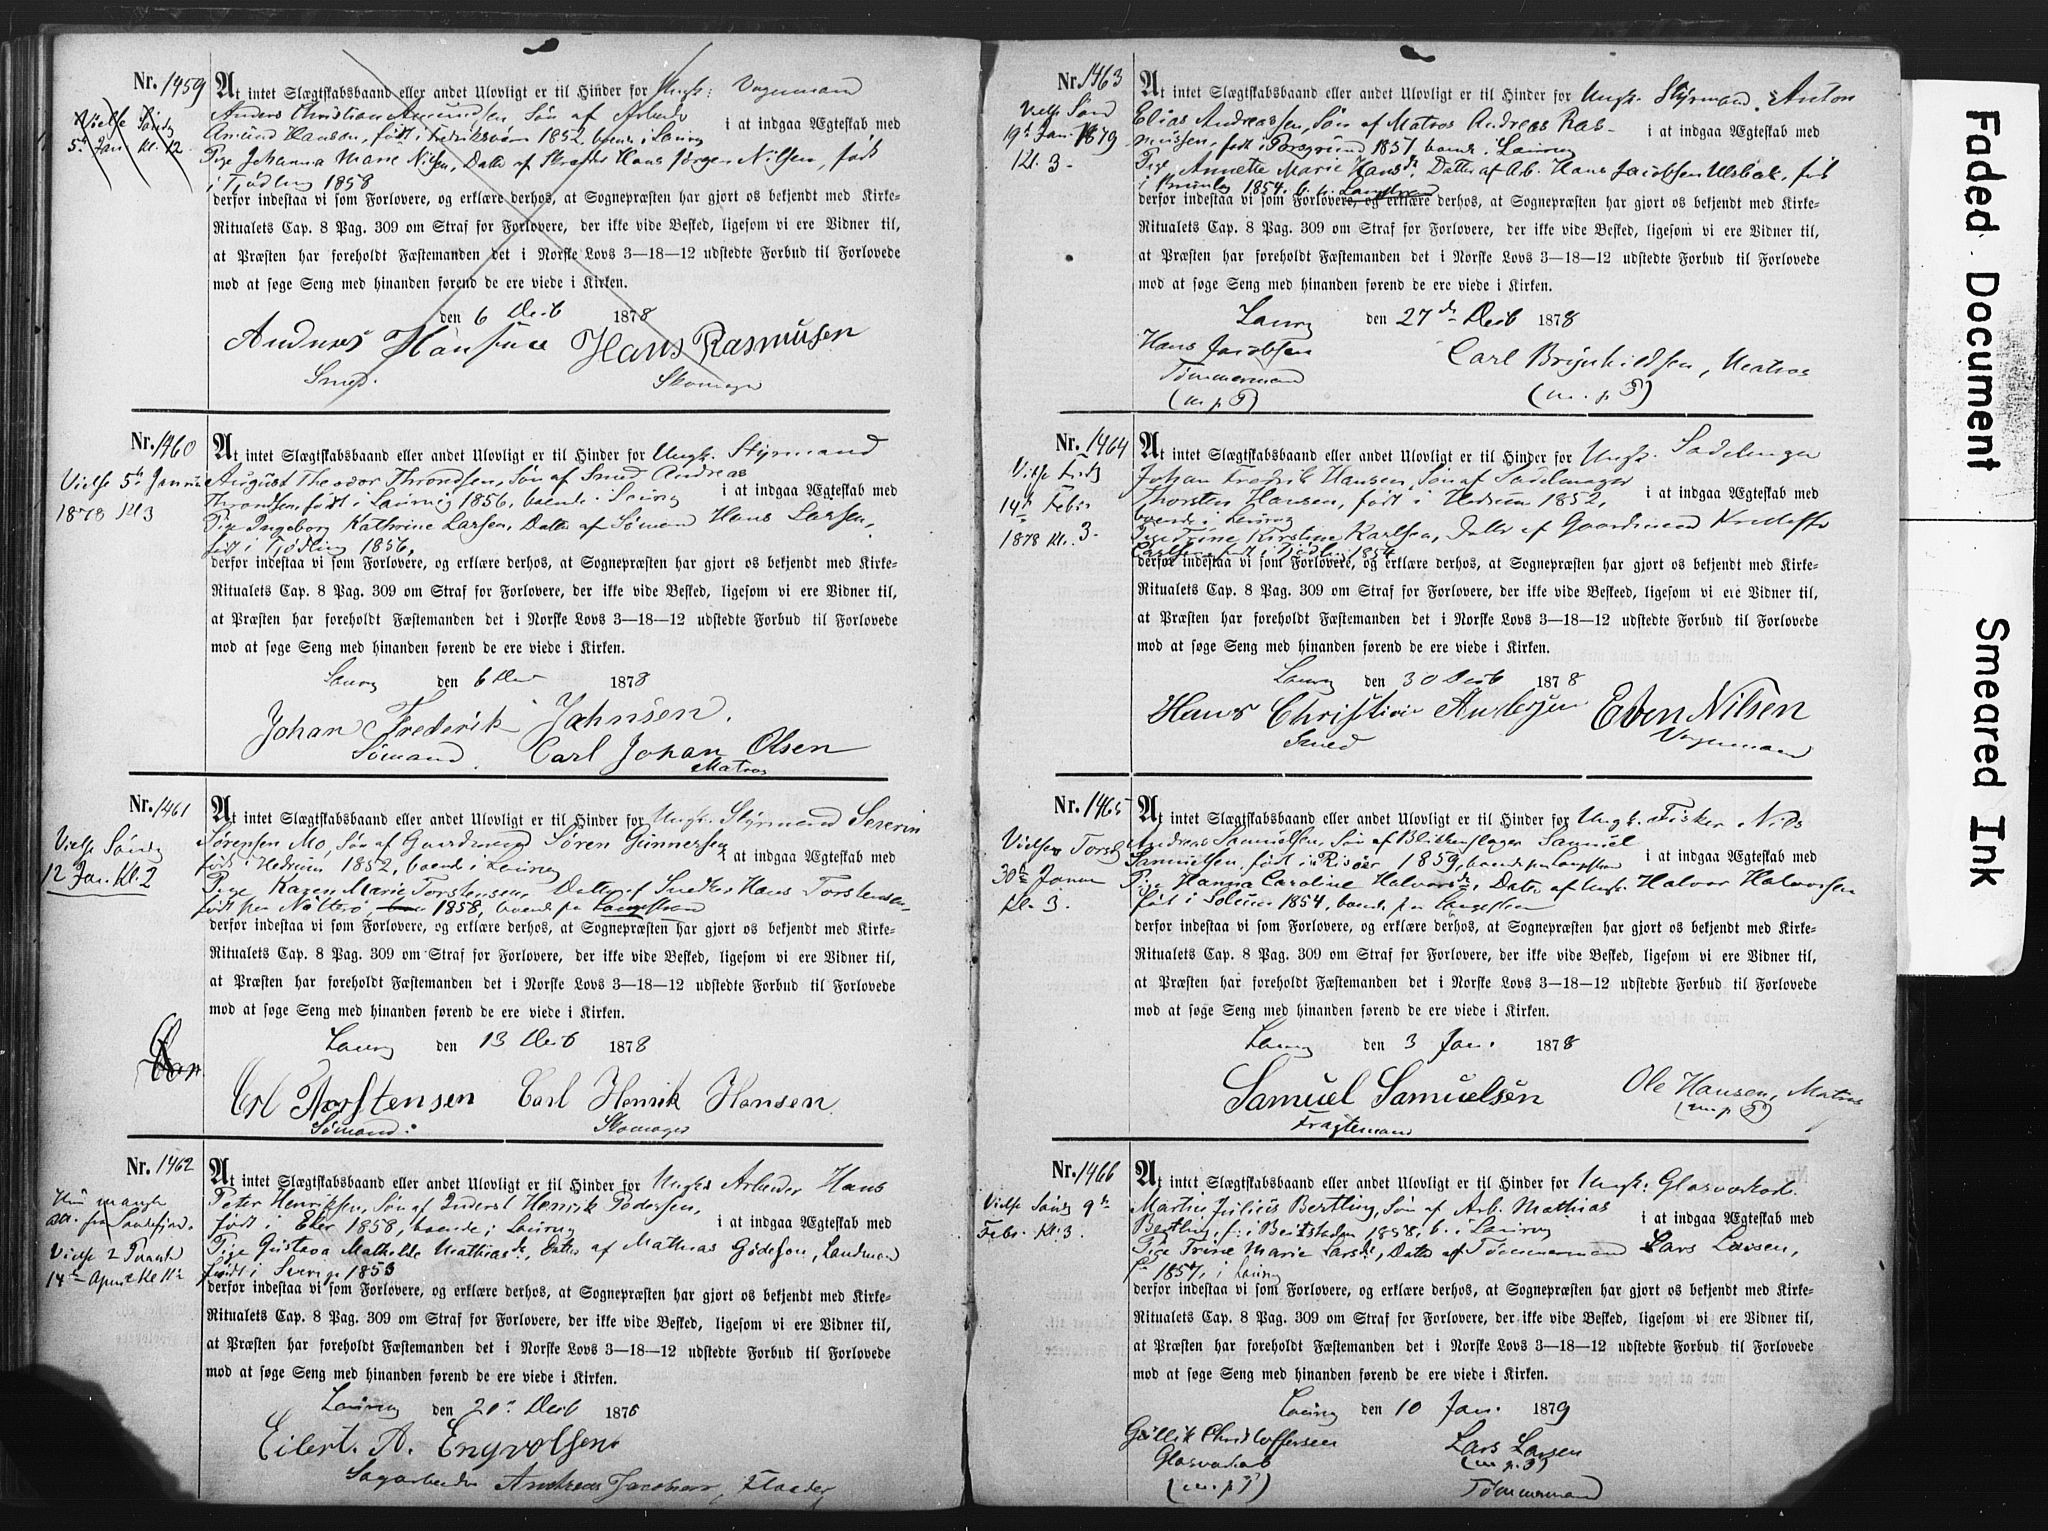 Nr. 1459
Vielse Søndg
5te Jan Kl. 12
At intet Slægtskabsbaand eller andet Ulovligt er til Hinder for Ungk: Vognmand
Anders Christian Amundsen, Søn af Arbeider
Amund Hansen, født i Fredriksværn 1852, boende i Laurvig
i at indgaa Ægteskab med
Pige Johanna Marie Nilsen, Datter af Hans Jørgen Nilsen, født
i Tjødling 1858
derfor indestaa vi som Forlovere, og erklære derhos, at Sognepræsten har gjort os bekjendt med Kirke-
Ritualets Cap. 8 Pag. 309 om Straf for Forlovere, der ikke vide Besked, ligesom vi ere Vidner til,
at Præsten har foreholdt Fæstemanden det i Norske Lovs 3—18—12 udstedte Forbud til Forlovede
mod at søge Seng med hinanden førend de ere viede i Kirken.
den 6 Decb 1878
Andreas Hansen Hans Rasmusen
Smed. Skomager
Nr. 1460
Vielse 5te Januar
1878 Kl 3
At intet Slægtskabsbaand eller andet Ulovligt er til Hinder for Ungk. Styrmand
August Theodor Throndsen, Søn af Smed Andreas
Throndsen, født i Laurvig 1856, boende i Laurvig
i at indgaa Ægteskab med
Pige Ingeborg Kathrine Larsen, Datter af Sømand Hans Larsen,
født i Tjødling 1856,
derfor indestaa vi som Forlovere, og erklære derhos, at Sognepræsten har gjort os bekjendt med Kirke-
Ritualets Cap. 8 Pag. 309 om Straf for Forlovere, der ikke vide Besked, ligesom vi ere Vidner til,
at Præsten har foreholdt Fæstemanden det i Norske Lovs 3—18—12 udstedte Forbud til Forlovede
mod at søge Seng med hinanden førend de ere viede i Kirken.
Laurvig den 6 Dec 1878
Johan Frederik Jahnsen.
Sømand. Carl Johan Olsen
Matros
Nr. 1461
Vielse Søndg
12 Jan. Kl. 2
At intet Slægtskabsbaand eller andet Ulovligt er til Hinder for Ungk. Styrmand Severin
Sørensen Mo, Søn af Gaardmand Søren Gunnersen
født i Hedrum 1852, boende i Laurvig
i at indgaa Ægteskab med
Pige Karen Marie Torstensen, Datter af Snedker Hans Torstensen,
født paa Nøtterø, 1858, boende paa Langestrand
derfor indestaa vi som Forlovere, og erklære derhos, at Sognepræsten har gjort os bekjendt med Kirke-
Ritualets Cap. 8 Pag. 309 om Straf for Forlovere, der ikke vide Besked, ligesom vi ere Vidner til,
at Præsten har foreholdt Fæstemanden det i Norske Lovs 3—18—12 udstedte Forbud til Forlovede
mod at søge Seng med hinanden førend de ere viede i Kirken.
Laurvig den 13 Decb 1878
Torstensen Carl Henrik Hansen
Sømand. Skomager
Nr. 1462
Hun mangle
att. fra Sandefjord.
Vielse 2 Paaske
14de April Kl. 11
At intet Slægtskabsbaand eller andet Ulovligt er til Hinder for Ungk. Arbeider Hans
Peter Henriksen, Søn af Inderst Henrik Pedersen,
født i Eker 1858, boende i Laurvig
i at indgaa Ægteskab med
Pige Gustava Mathilde Mathiasdr, Datter af Mathias Gødeson, Landmand
født i Sverige 1853
derfor indestaa vi som Forlovere, og erklære derhos, at Sognepræsten har gjort os bekjendt med Kirke-
Ritualets Cap. 8 Pag. 309 om Straf for Forlovere, der ikke vide Besked, ligesom vi ere Vidner til,
at Præsten har foreholdt Fæstemanden det i Norske Lovs 3—18—12 udstedte Forbud til Forlovede
mod at søge Seng med hinanden førend de ere viede i Kirken.
Laurvig den Decb 1878
Eilert. A. Engvolsen
Sagarbeider Andreas Jacobsen,
Nr. 1463
Vielse Sønd
19de Jan. 1879
Kl. 3.
At intet Slægtskabsbaand eller andet Ulovligt er til Hinder for Ungk. Styrmand Anton
Elias Andreassen, Søn af Matros Andreas Ras-
mussen, født i Porsgrund 1857, boende i Laurvig
i at indgaa Ægteskab med
Pige Annette Marie Hansdr. Datter af Arb. Hans Jacobsen Ulsbak, født
i Brunla 1854. b. i. Langestrand
derfor indestaa vi som Forlovere, og erklære derhos, at Sognepræsten har gjort os bekjendt med Kirke-
Ritualets Cap. 8 Pag. 309 om Straf for Forlovere, der ikke vide Besked, ligesom vi ere Vidner til,
at Præsten har foreholdt Fæstemanden det i Norske Lovs 3—18—12 udstedte Forbud til Forlovede
mod at søge Seng med hinanden førend de ere viede i Kirken.
Laurvig den 27de Decb 1878
Hans Jacobsen Carl Brynhildsen, Matros
Tømmermand
(m. p. P) (m. p. P)
Nr. 1464
Vielse Fredg
14de Febr
1878 Kl. 3.
At intet Slægtskabsbaand eller andet Ulovligt er til Hinder for Ungk. Sadelmager
Johan Fredrik Hansen, Søn af Sadelmager
Thorsten Hansen, født i Hedrum 1852,
boende i Laurvig
i at indgaa Ægteskab med
Pige Trine Kirstine Karlsen, Datter af Gaardmand Kristoffer
Carlsen, født i Tjødling 1854
derfor indestaa vi som Forlovere, og erklære derhos, at Sognepræsten har gjort os bekjendt med Kirke-
Ritualets Cap. 8 Pag. 309 om Straf for Forlovere, der ikke vide Beskeed, ligesom vi ere Vidner til,
at Præsten har foreholdt Fæstemanden det i Norske Lovs 3—18—12 udstedte Forbud til Forlovede
mod at søge Seng med hinanden førend de ere viede i Kirken.
Laurvig den 30 Decb 1878
Hans Christian Andersen Even Nilsen
Smed Vognmand
Nr. 1465
Vielse Torsdg
30te Januar
Kl. 3.
At intet Slægtskabsbaand eller andet Ulovligt er til Hinder for Ungk. Fisker Nils
Andreas Samuelsen, Søn af Blikkenslager Samuel
Samuelsen, født i Risøer 1859, boende paa Langestran
i at indgaa Ægteskab med
Pige Hanna Caroline Halvorsdr, Datter af Ungk. Halvor Halvorsen
født i Solum 1854, boende paa Langestran
derfor indestaa vi som Forlovere, og erklære derhos, at Sognepræsten har gjort os bekjendt med Kirke-
Ritualets Cap. 8 Pag. 309 om Straf for Forlovere, der ikke vide Besked, ligesom vi ere Vidner til,
at Præsten har foreholdt Fæstemanden det i Norske Lovs 3—18—12 udstedte Forbud til Forlovede
mod at søge Seng med hinanden førend de ere viede i Kirken.
Laurvig den 3 Jan. 1878
Samuel Samuelsen Ole Hansen, Matros
(m. p. P)
Fragtemand
Nr. 1466
Vielse Søndg 9de
Febr. Kl. 3.
At intet Slægtskabsbaand eller andet Ulovligt er til Hinder for Ungk: Glasværksarb.
Martin Julius Bertling, Søn af Arb. Mathias
Bertling, f. i Beitstaden 1858, b. i Laurvig
i at indgaa Ægteskab med
Pige Trine Marie Larsdr, Datter af Tømmermand Lars Larsen,
f. 1857, i Laurvig
derfor indestaa vi som Forlovere, og erklære derhos, at Sognepræsten har gjort os bekjendt med Kirke-
Ritualets Cap. 8 Pag. 309 om Straf for Forlovere, der ikke vide Besked, ligesom vi ere Vidner til,
at Præsten har foreholdt Fæstemanden det i Norske Lovs 3—18—12 udstedte Forbud til Forlovede
mod at søge Seng med hinanden førend de ere viede i Kirken.
Laurvig den 10 Jan. 1879
Gullik Christoffersen Lars Larsen
Glasværksarb (m. p. P)
(m. p. P) Tømmermand
Faded Document
Smeared Ink